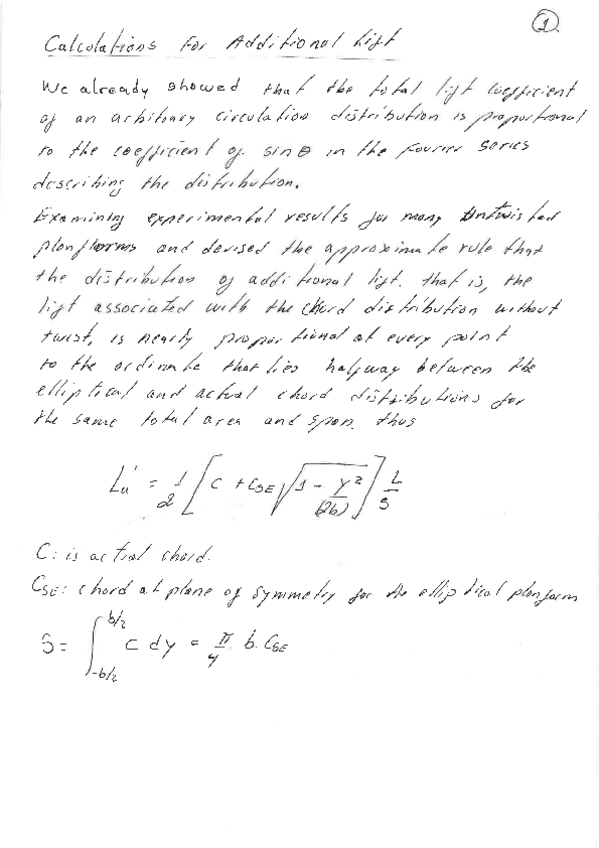 1
Calculations For Additional Lift
We already showed that the total lift coefficient
of an arbitrary circulation distribution is proportional
to the coefficient of sinθ in the Fourier series
describing the distribution.
Examining experimental results for many untwisted
planforms and devised the approximate rule that
the distribution of additional lift. that is, the
lift associated with the chord distribution without
twist, is nearly proportional at every point
to the ordinate that lies halfway between the
elliptical and actual chord distributions for
the same total area and span. thus
L'a = 1/2 [C + CSE √(1 - y²/(2b))] L/S
C: is actual chord.
CSE: chord at plane of symmetry for the elliptical planform
S = ∫_{-b/2}^{b/2} c dy = π/4 . b. CSE